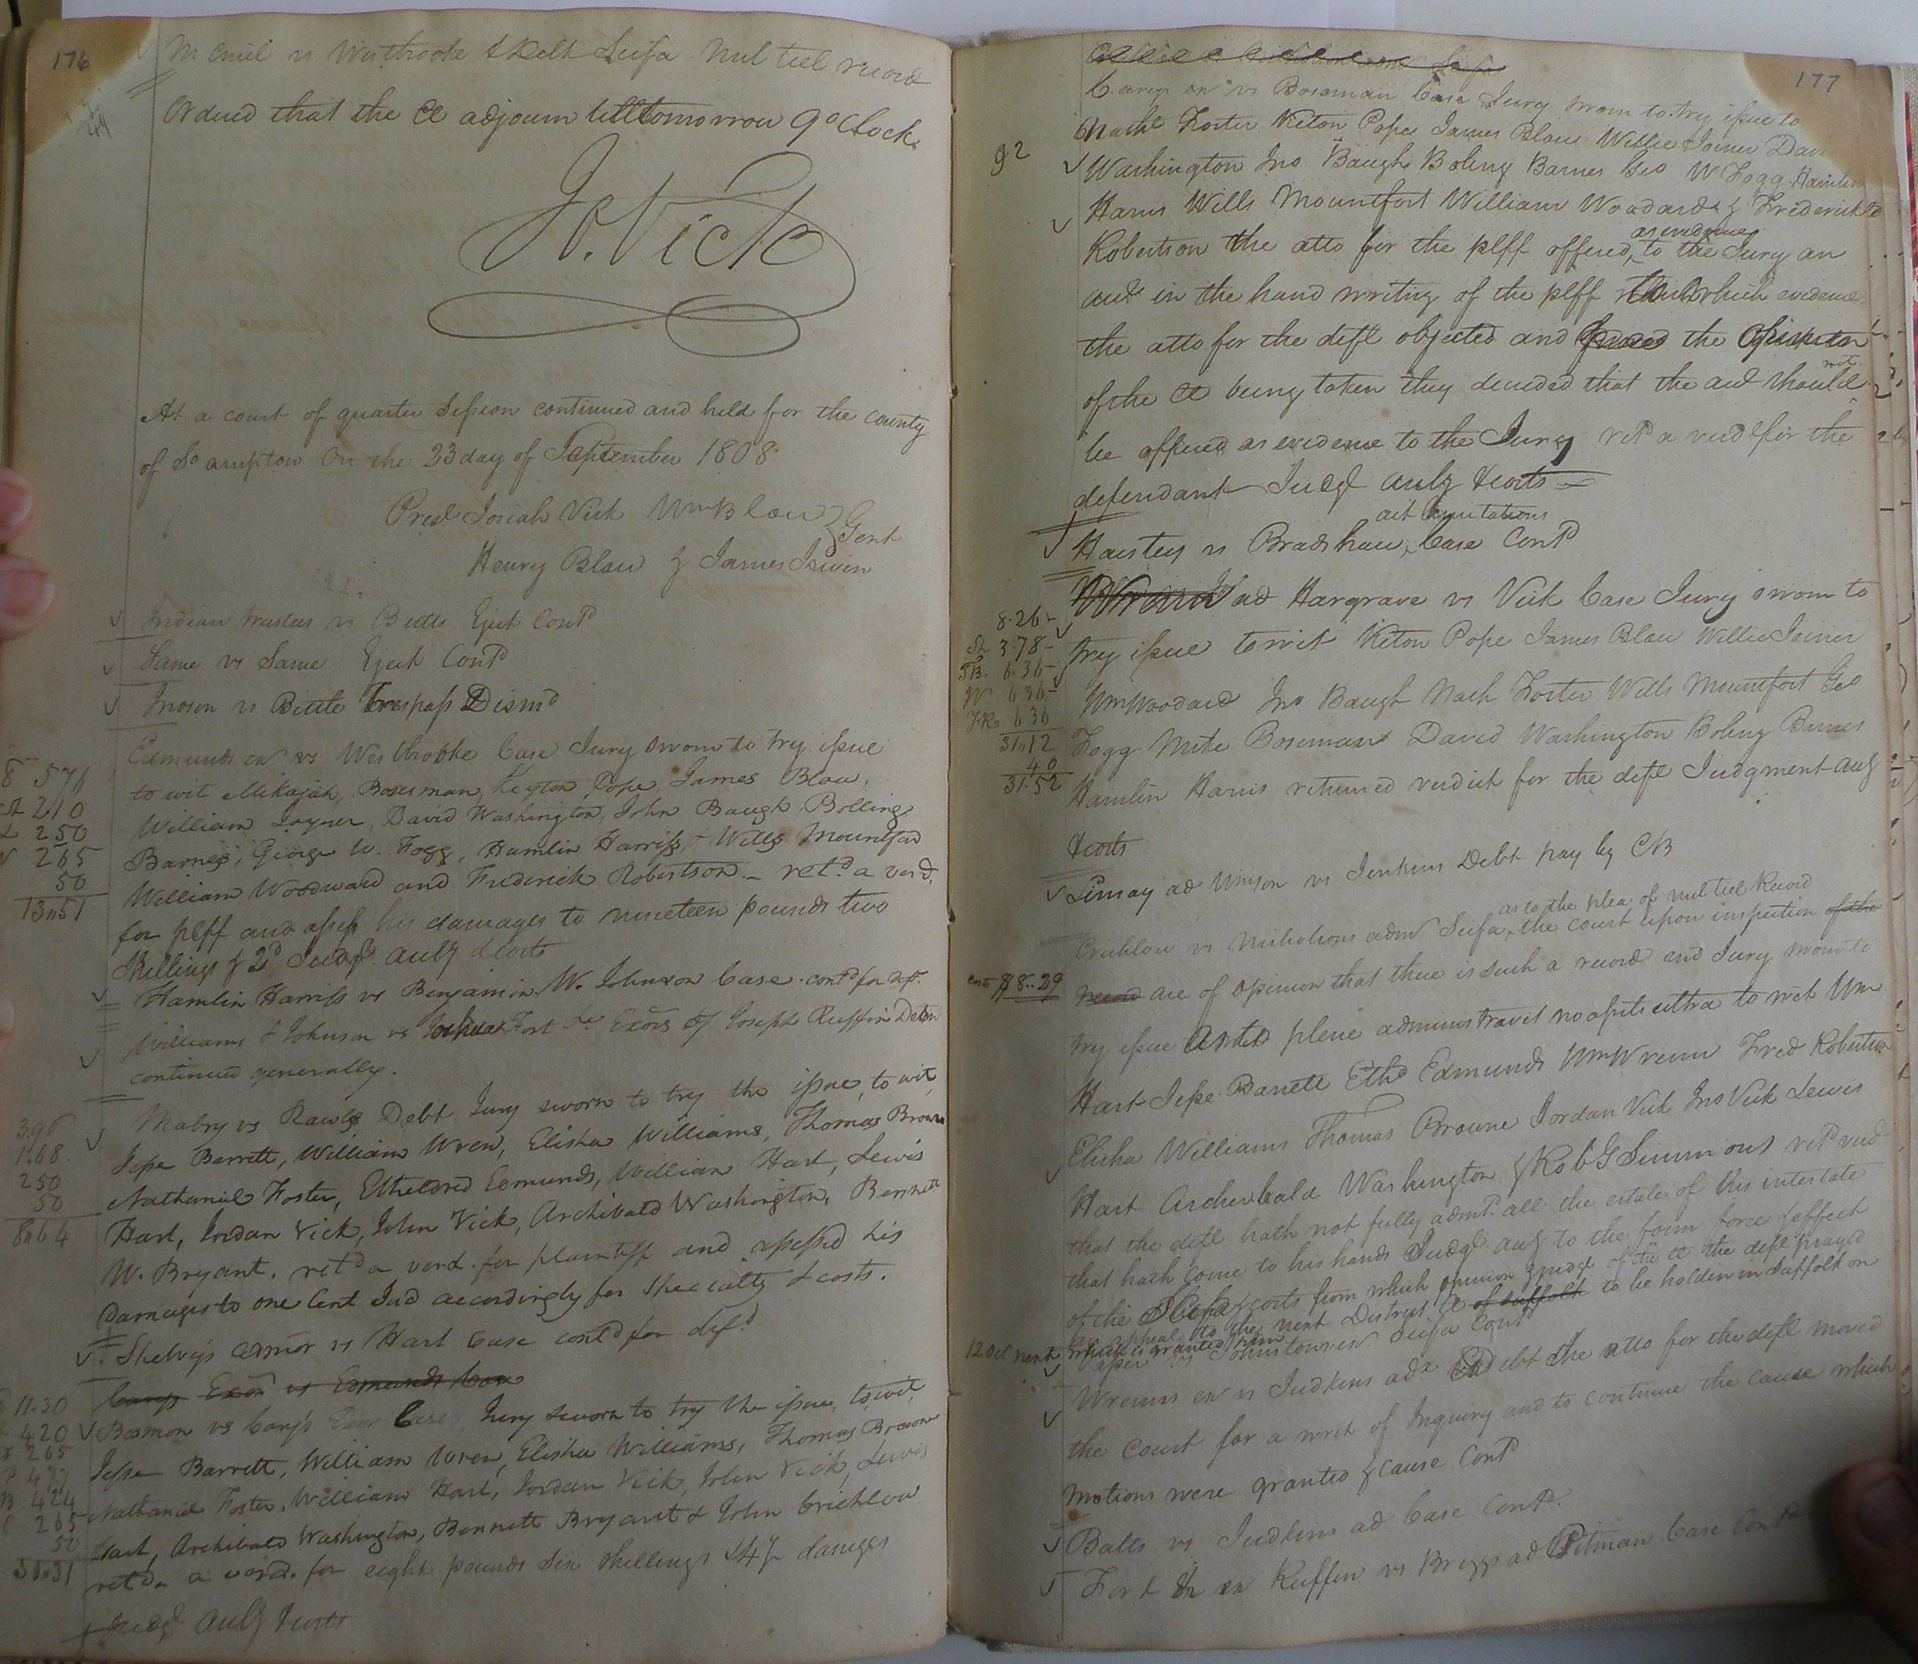 176
vs Westbrooke & Kelt Scifa Nul teil record
Ordered that the Ct adjourn till tomorrow 9 oClock
Jo. Vick
At a court of quarter Session continued and held for the county
of So ampton On the 23 day of September 1808
Presd Josiah Vick Wm Blow } Gent
Henry Blow & James
Indian trustees vs Butts Eject Contd
Same vs Same Eject Contd
vs Trespass Dismd
Edmunds exr vs Westbrooke Case Jury sworn to try issue
to wit Mikajah Boseman, Keyton Pope, James Blow,
William Joyner, David Washington, John Baugh, Bolling
Barnes, George W. Fogg, Hamlin Harriss, & Wills Mountfort
William Woodward and Frederick Robertson – retd a verd.
for plff and assess his damages to nineteen pounds two
Shillings & 2d Judgt. accly & costs
8 576
210
250
265
50
13"51
Hamlin Harriss vs Benjamin W. Johnson Case contd for deft.
Williams & Johnson vs Joshua Fort &c Exors of Joseph Ruffin Debt
continued generally.
Mabry vs Rawls Debt Jury sworn to try the issue, to wit,
Jesse Barrett, William Wren, Elisha Williams, Thomas Browne
Nathaniel Foster, Etheldred Edmunds, William Hart, Lewis
Hart, Jordan Vick, John Vick, Archibald Washington, Bennett
W. Bryant. retd a verd. for plaintiff and assessed his
Damages to one Cent Jud accordingly for Specialty & costs.
396
1.68
250
50
8"64
Shelvys vs Hart Case contd for deft
Carys Exor vs Edmunds Case
Bosmon vs Cary's Exor Case Jury sworn to try the issue, to wit,
Jesse Barrett, William Wren, Elisha Williams, Thomas Browne
Nathaniel Foster, William Hart, Jordan Vick, John Vick, Lewis
Hart, Archibald Washington, Bennett Bryant & John Crichlow
retd. a verd. for eight pounds six shillings & 4d damages
Judgt accly & costs
11.30
420
265
477
424
265
50
177
Carys exr vs Boseman Case Jury sworn to try issue to
Nathl Foster Keton Pope James Blow Willie Joiner David
92
Washington Jno Baugh Boling Barnes Geo W Fogg Hamlin
Harris Wills Mountfort William Woodard & Frederick
as evidence
Robertson the atto for the plff offered to the Jury an
acct in the hand writing of the plff to which evidence
the atto for the deft objected and the Opinion
not
of the Ct being taken they decided that the acct should
be offered as evidence to the Jury retd a verdt for the
defendant Judgt accly & costs
act limitations
vs Bradshaw Case Contd
ad Hargrave vs Vick Case Jury sworn to
try issue to wit Keton Pope James Blow Willie Joiner
Wm Woodard Jno Baugh Nath Foster Wills Mountfort Geo
Fogg Mike Boseman David Washington Boling Barnes
Hamlin Harris returned verdict for the deft Judgment accly
& costs
8.26
3.78
6.36
636
636
31"12
40
31.52
ad vs Jenkins Debt pay by CB
as to the plea of nul teil Record
Crichlow vs Nicholsons admr Scifa, the court upon inspection of the
record are of opinion that there is such a record and Jury sworn to
costs $8..29
try issue as to plene administravit no assets ultra to wit Wm
Hart Jesse Barrett Ethd Edmunds Wm Wrenn Fred Robertson
Elisha Williams Thomas Browne Jordan Vick Jno Vick Lewis
Hart Archibald Washington & Rob G Simmons retd verd
that the deft hath not fully admd. all the estate of his intestate
that hath come to his hands Judgt accly to the form force & effect
of the Scifa & costs from which opinion & judgt of the ct the deft prayed
an appeal to the next District Ct of Suffolk to be holden in Suffolk on
12 Oct next which is granted him
vs Scifa Contd
Wrenns exr vs Judkins adx debt the atto for the deft moved
the Court for a writ of Inquiry and to continue the cause which
motions were granted & cause Contd
Batts vs Judkins ad Case Contd.
Fort & exr Ruffin vs Briggs ad Pitman Case Contd